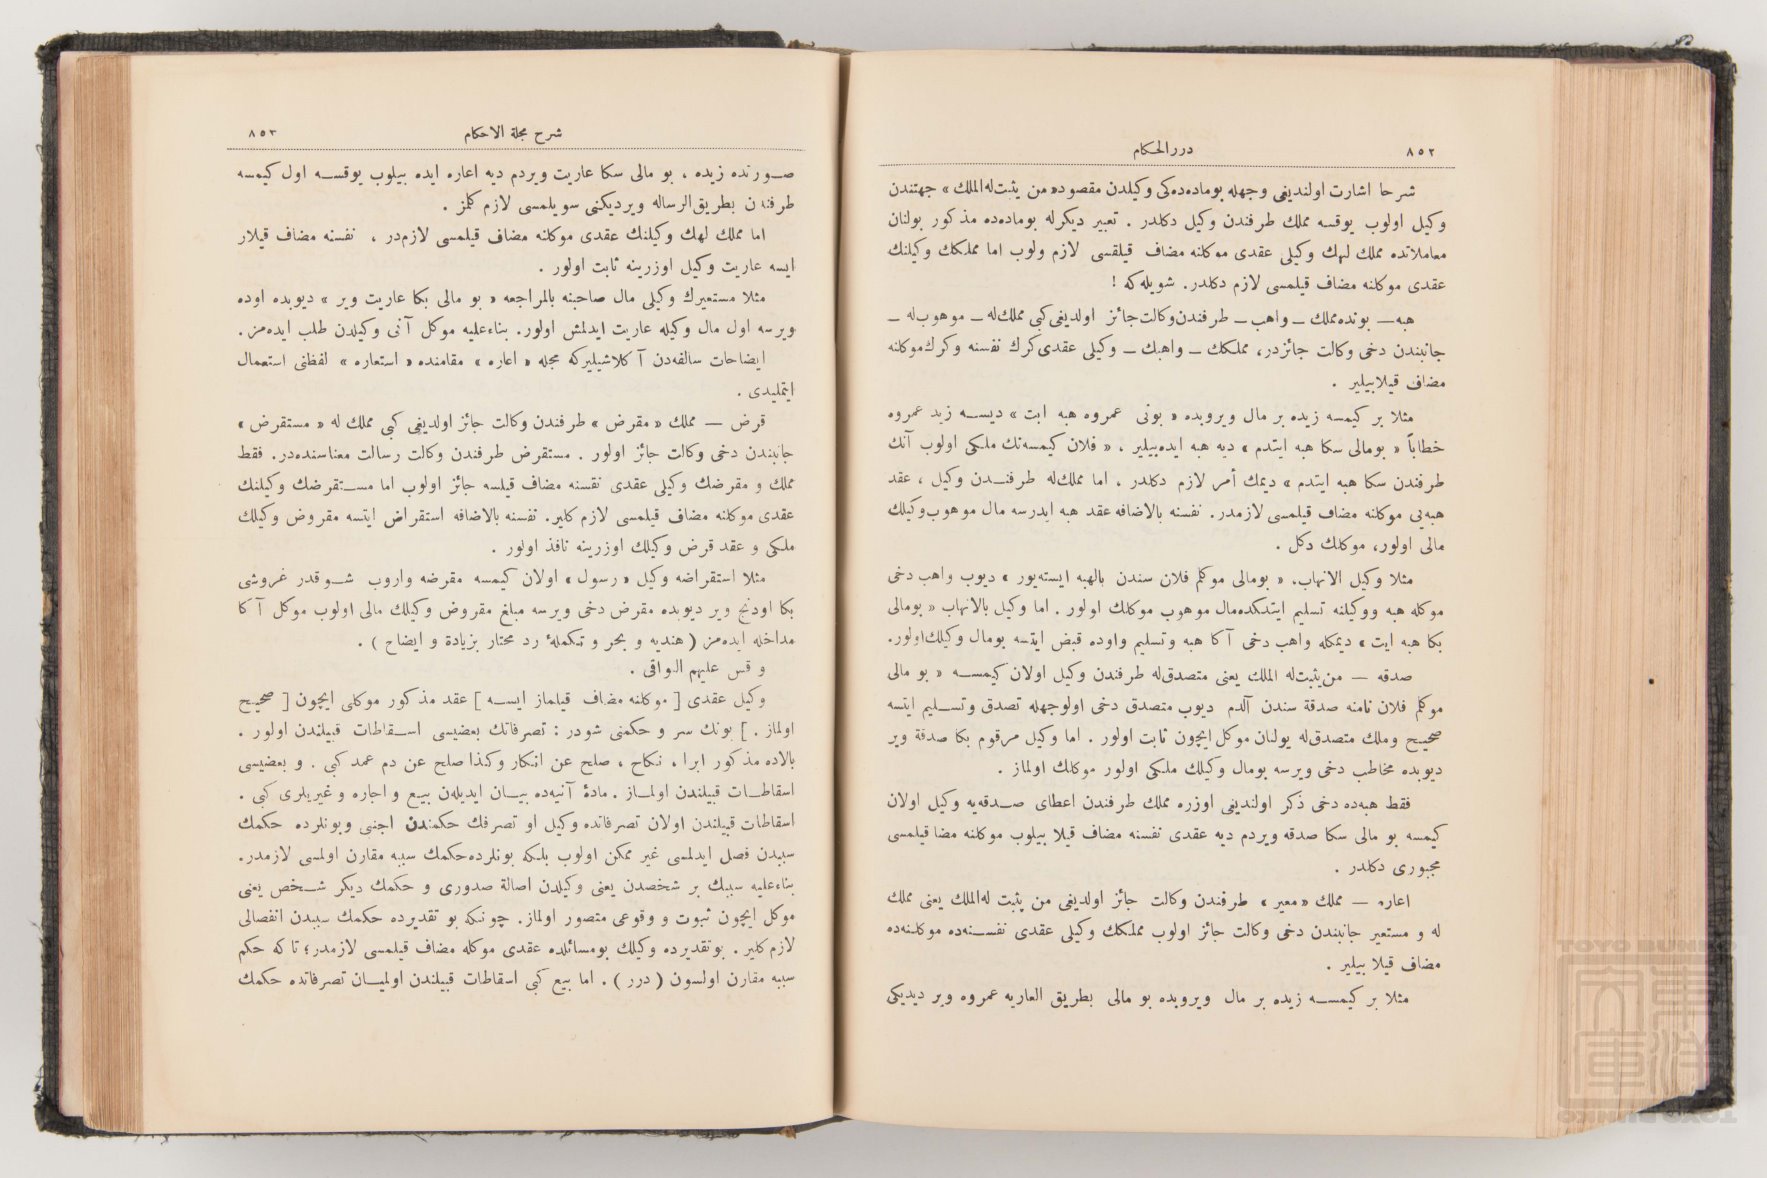 ٨٥٢
دررالحكام
شرحا اشارت اولنديغى وجهله بوماده‌ده‌كى وكيلدن مقصود«من يثبت‌له‌الملك» جهتندن
وكيل اولوب يوقسه مملك طرفندن وكيل دكلدر . تعبير ديكرله بوماده‌ده مذكور بولنان
معاملاتده مملك لهك وكيلى عقدى موكلنه مضاف قيلقسى لازم ولوب اما مملكك وكيلنك
عقدى موكلنه مضاف قيلمسى لازم دكلدر. شويله‌كه !
هبه— بونده‌مملك — واهب — طرفندن‌وكالت‌جائز اولديغى‌كبى مملك‌له — موهوب‌له —
جانبندن دخى وكالت جائزدر، مملكك — واهبك — وكيلى عقدى‌كرك نفسنه وكرك‌موكلنه
مضاف قيلابيلير .
مثلا بر كيمسه زيده بر مال ويروبده « بونى عمروه هبه ايت » ديسه زيد عمروه
خطاباً « بومالى سكا هبه ايتدم » ديه هبه ايده‌بيلير ، « فلان كيمسه‌نك ملكى اولوب آنك
طرفندن سكا هبه ايتدم » ديمك أمر لازم دكلدر ، اما مملك‌له طرفندن وكيل ، عقد
هبه‌يى موكلنه مضاف قيلمسى لازمدر. نفسنه بالاضافه عقد هبه ايدرسه مال موهوب‌وكيلك
مالى اولور، موكلك دكل .
مثلا وكيل الاتهاب، « بومالى موكلم فلان سندن بالهبه ايسته‌يور » ديوب واهب دخى
موكله هبه ووكيلنه تسليم ايتدكده‌مال موهوب موكلك اولور . اما وكيل بالاتهاب « بومالى
بكا هبه ايت » ديمكله واهب دخى آكا هبه وتسليم واوده قبض ايتسه بومال وكيلك‌اولور.
صدقه — من‌يثبت‌له الملك يعنى متصدق‌له طرفندن وكيل اولان كيمسه « بو مالى
موكلم فلان نامنه صدقة سندن آلدم ديوب متصدق دخى اولوجهله تصدق وتسليم ايتسه
صحيح وملك متصدق‌له بولنان موكل‌ايچون ثابت اولور . اما وكيل مرقوم بكا صدقة وير
ديوبده مخاطب دخى ويرسه بومال وكيلك ملكى اولور موكلك اولماز .
فقط هبه‌ده دخى ذكر اولنديغى اوزره مملك طرفندن اعطاى صدقه‌يه وكيل اولان
كيمسه بو مالى سكا صدقه ويردم ديه عقدى نفسنه مضاف قيلا بيلوب موكلنه مضا قيلمسى
مجبورى دكلدر .
اعاره — مملك «معير» طرفندن وكالت جائز اولديغى من يثبت له‌الملك يعنى مملك
له و مستعير جانبندن دخى وكالت جائز اولوب مملكك وكيلى عقدى نفسنه‌ده موكلنه‌ده
مضاف قيلا بيلير .
مثلا بر كيمسه زيده بر مال ويروبده بو مالى بطريق العاريه عمروه وير ديديكى
شرح مجلة الاحكام
٨٥٣
صورنده زيده ، بو مالى سكا عاريت ويردم ديه اعاره ايده بيلوب يوقسه اول كيمسه
طرفندن بطريق‌الرساله ويرديكنى سويلمسى لازم كلمز .
اما مملك لهك وكيلنك عقدى موكلنه مضاف قيلمسى لازم‌در ، نفسنه مضاف قيلار
ايسه عاريت وكيل اوزرينه ثابت اولور .
مثلا مستعيرك وكيلى مال صاحبنه بالمراجعه « بو مالى بكا عاريت وير » ديوبده اوده
ويرسه اول مال وكيله عاريت ايدلمش اولور. بناءعليه موكل آنى وكيلدن طلب ايده‌مز.
ايضاحات سالفه‌دن آكلاشيليركه مجله « اعاره » مقامنده « استعاره » لفظنى استعمال
ايتمليدى .
قرض — مملك « مقرض » طرفندن وكالت جائز اولديغى كبى مملك له « مستقرض »
جانبندن دخى وكالت جائز اولور . مستقرض طرفندن وكالت رسالت معناسنده‌در. فقط
مملك و مقرضك وكيلى عقدى نفسنه مضاف قيلسه جائز اولوب اما مستقرضك وكيلنك
عقدى موكلنه مضاف قيلمسى لازم كلير. نفسنه بالاضافه استقراض ايتسه مقروض وكيلك
ملكى و عقد قرض وكيلك اوزرينه نافذ اولور .
مثلا استقراضه وكيل « رسول » اولان كيمسه مقرضه واروب شوقدر غروشى
بكا اودنج وير ديوبده مقرض دخى ويرسه مبلغ مقروض وكيلك مالى اولوب موكل آكا
مداخله ايده‌مز ( هنديه و بحر و تكملهٔ رد محتار بزيادة و ايضاح ) .
و قس عليهم البواقى .
وكيل عقدى [ موكلنه مضاف قيلماز ايسه ] عقد مذكور موكلى ايچون [ صحيح
اولماز . ] بونك سر و حكمتى شودر : تصرفاتك بعضيسى اسقاطات قبيلندن اولور .
بالاده مذكور ابرا ، نكاح ، صلح عن انكار وكذا صلح عن دم عمد كبى . و بعضيسى
اسقاطات قبيلندن اولماز . مادهٔ آتيه‌ده بيان ايديلەن بيع و اجاره و غيريلرى كبى .
اسقاطات قبيلندن اولان تصرفاتده وكيل او تصرفك حكمندن اجنبى وبونلرده حكمك
سببدن فصل ايدلمسى غير ممكن اولوب بلكه بونلرده‌حكمك سببه مقارن اولمسى لازمدر.
بناءعليه سببك بر شخصدن يعنى وكيلدن اصالة صدورى و حكمك ديكر شخص يعنى
موكل ايچون ثبوت و وقوعى متصور اولماز. چونكه بو تقديرده حكمك سببدن انفصالى
لازم كلير . بوتقديرده وكيلك بومسائلده عقدى موكله مضاف قيلمسى لازمدر؛ تا كه حكم
سببه مقارن اولسون ( درر ) . اما بيع كبى اسقاطات قبيلندن اولميان تصرفاتده حكمك
TOYO BUNKO
東洋文庫
TOYO BUNKO